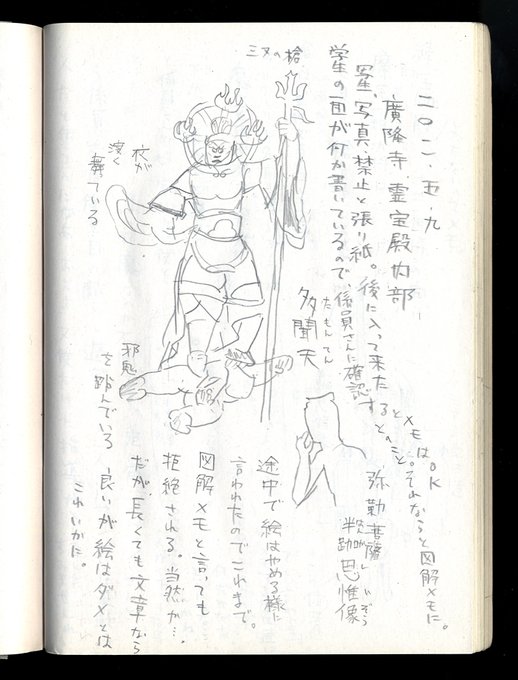 二〇一一.五.九
廣隆寺.霊宝殿内部.
写生、写真、禁止と張り紙。後に入って来た
学生の一団が何か書いているので、係員さんに確認
すると
メモはOK
とのこと。それならと図解メモに。
三叉の槍
衣が
淡く
舞ている
たもんてん
多聞天
弥勒菩薩
半跏思惟像
しい ぞう
邪鬼
を踏んでいる
途中で絵はやめる様に
言われたのでこれまで。
図解メモと言っても
拒絶される。当然か…。
だが、長くても文章なら
良いが絵はダメとは
これいかに。